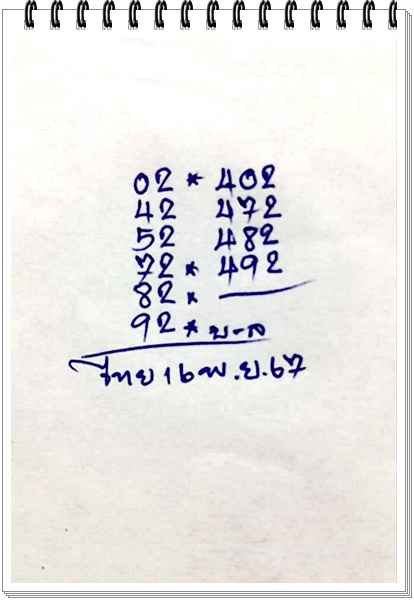 02 * 402
42 472
52 482
72 * 492
82 *
92 * บ-ล
ไทย 16 พ.ย.67